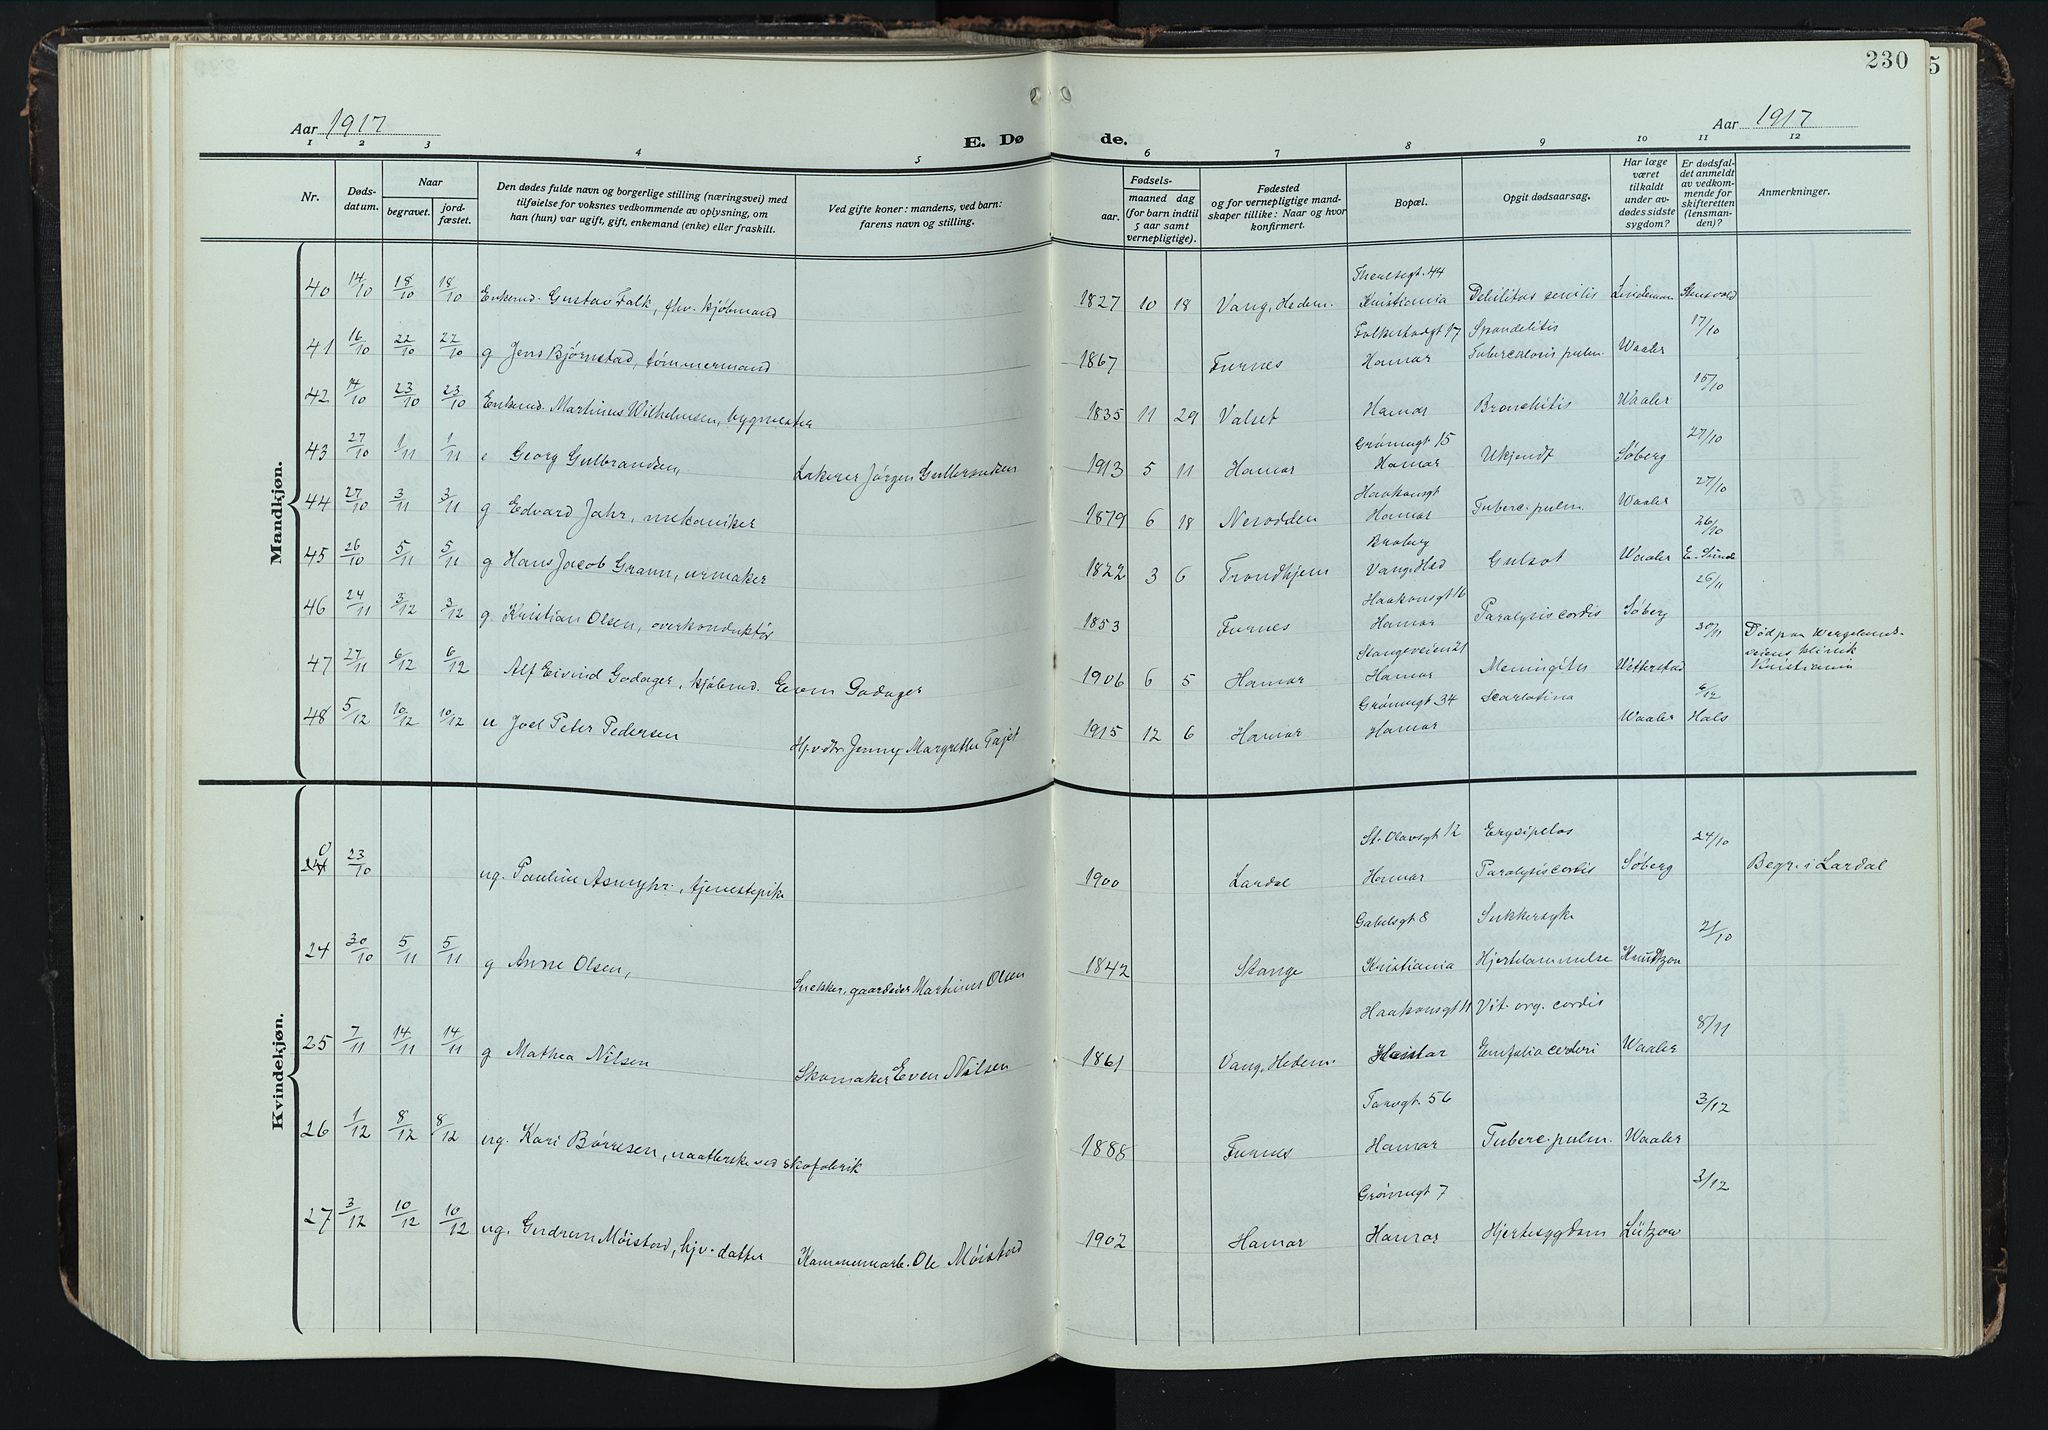 230
5
Aar 1917
Aar 1917
E. Dø
de.
1 2 3 4 5 6 7 8 9 10 11 12
Nr.
Døds-
datum.
Naar
begravet.
jord-
fæstet.
Den dødes fulde navn og borgerlige stilling (næringsvei) med
tilføielse for voksnes vedkommende av oplysning, om
han (hun) var ugift, gift, enkemand (enke) eller fraskilt.
Ved gifte koner: mandens, ved barn:
farens navn og stilling.
Fødsels-
aar.
maaned dag
(for barn indtil
5 aar samt
vernepligtige).
Fødested
og for vernepligtige mand-
skaper tillike: Naar og hvor
konfirmert.
Bopæl.
Opgit dødsaarsag.
Har læge
været
tilkaldt
under av-
dødes sidste
sygdom?
Er dødsfal-
det anmeldt
av vedkom-
mende for
skifteretten
(lensman-
den)?
Anmerkninger.
Mandkjøn.
Theresegt. 44
40 14/10 18/10 18/10 Enkemd. Gustav Falk, fhv. kjøbmand 1827 10 18 Vang, Hedem. Kristiania Debilitas senilis Lindeman Stensvold
Falkestadgt 17 Spondelitis 17/10
41 16/10 22/10 22/10 g Jens Bjørnstad, tømmermand 1867 Furnes Hamar Tuberculosis pulm. Waaler
15/10
42 14/10 23/10 23/10 Enkemd. Martinus Wilhelmsen, bygmester 1835 11 29 Valset Hamar Bronchitis Waaler
Grønnegt 15 27/10
43 27/10 1/11 1/11 e Georg Gulbrandsen, Lakerer Jørgen Gulbrandsen 1913 5 11 Hamar Hamar Ukjendt Søberg
Haakonsgt 27/10
44 27/10 3/11 3/11 g Edvard Jahr, mekaniker 1879 6 18 Nesodden Hamar Tuberc. pulm. Waaler
Broberg 26/10
45 26/10 5/11 5/11 g Hans Jacob Gramn, urmaker 1822 3 6 Trondhjem Vang, Hed Gulsot Waaler E. Sunde
Haakonsgt 16 26/11
46 24/11 3/12 3/12 g. Kristian Olsen, overkonduktør 1853 Furnes Hamar Paralysis cordis Søberg
Stangeveien 21 30/11 Død paa Wergelands-
veiens klinik
Kristiania
47 27/11 6/12 6/12 Alf Eivind Godager, kjøbmd. Even Godager 1906 6 5 Hamar Hamar Meningitis Wetterstad
Grønnegt 34 Scarlatina 6/12
48 5/12 10/12 10/12 u Joel Peter Pedersen Hj.v.dtr Jenny Margrethe Fajet 1915 12 6 Hamar Hamar Waaler Hals
Kvindekjøn.
St. Olavsgt 12 Erysipelas 24/10
0 23/10 ug. Pauline Asmyhr, tjenestepike 1900 Lardal Hamar Paralysis cordis Søberg Begr. i Lardal
Gabelsgt 8 Sukkersyke 21/10
24 30/10 5/11 5/11 g Anne Olsen, Snekker, gaardeier Martinus Olsen 1842 Stange Kristiania Hjertelammelse Knudtzon
Haakonsgt 11 Vit. org. cordis 8/11
25 7/11 14/11 14/11 g Mathea Nilsen Skomaker Even Nilsen 1861 Vang, Hedem. Hamar Emfolia cerderi Waaler
Torvgt. 56 3/12
26 1/12 8/12 8/12 ug. Kari Børresen, naatlerske ved skofabrik 1888 Furnes Hamar Tuberc. pulm. Waaler
Grønnegt 7 3/12
27 3/12 10/12 10/12 ug. Gudrun Møistad, hjv. datter Kommunearb. Ole Møistad 1902 Hamar Hamar Hjertesygdom Lützow